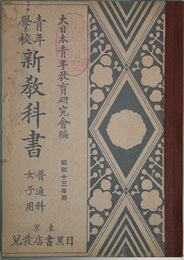 大日本青年教育研究會編
青年
學校
新教科書
普通科
女子用
昭和十三年用
東京
目黑書店發兌